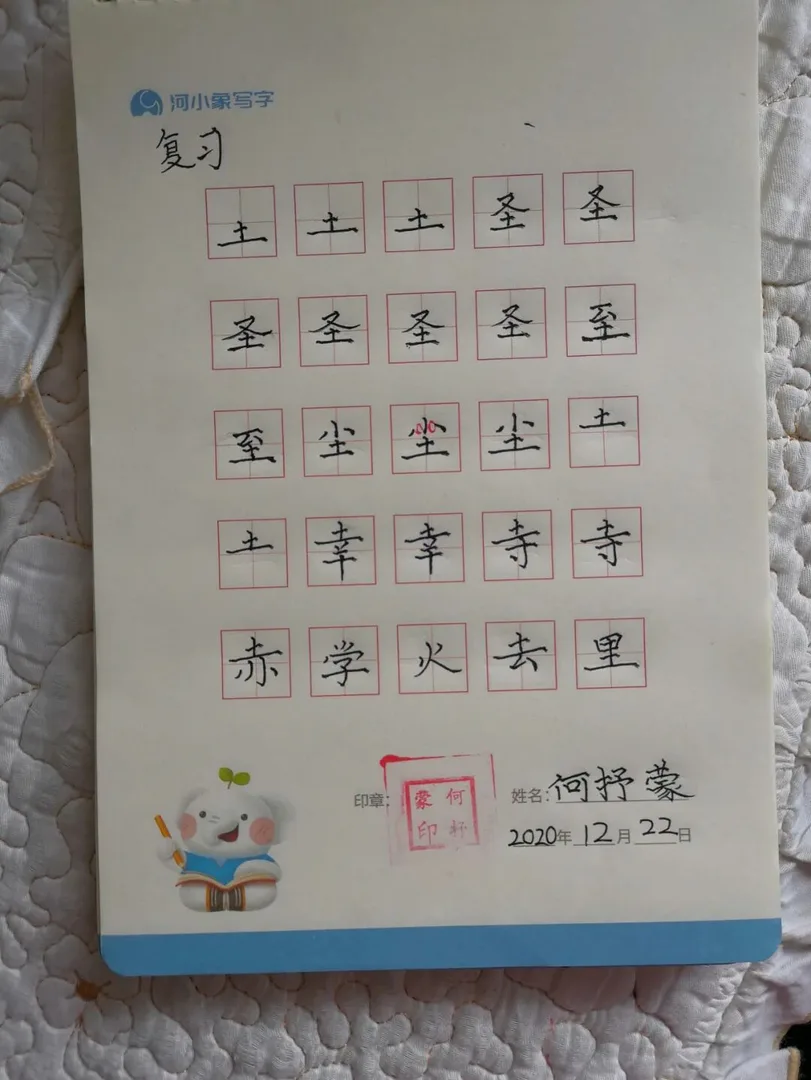 河小象写字
复习
土 土 土 圣 圣
圣 圣 圣 圣 至
至 尘 尘 尘 土
土 幸 幸 寺 寺
赤 学 火 去 里
印章:
蒙何
印抒
姓名:何抒蒙
2020年12月22日